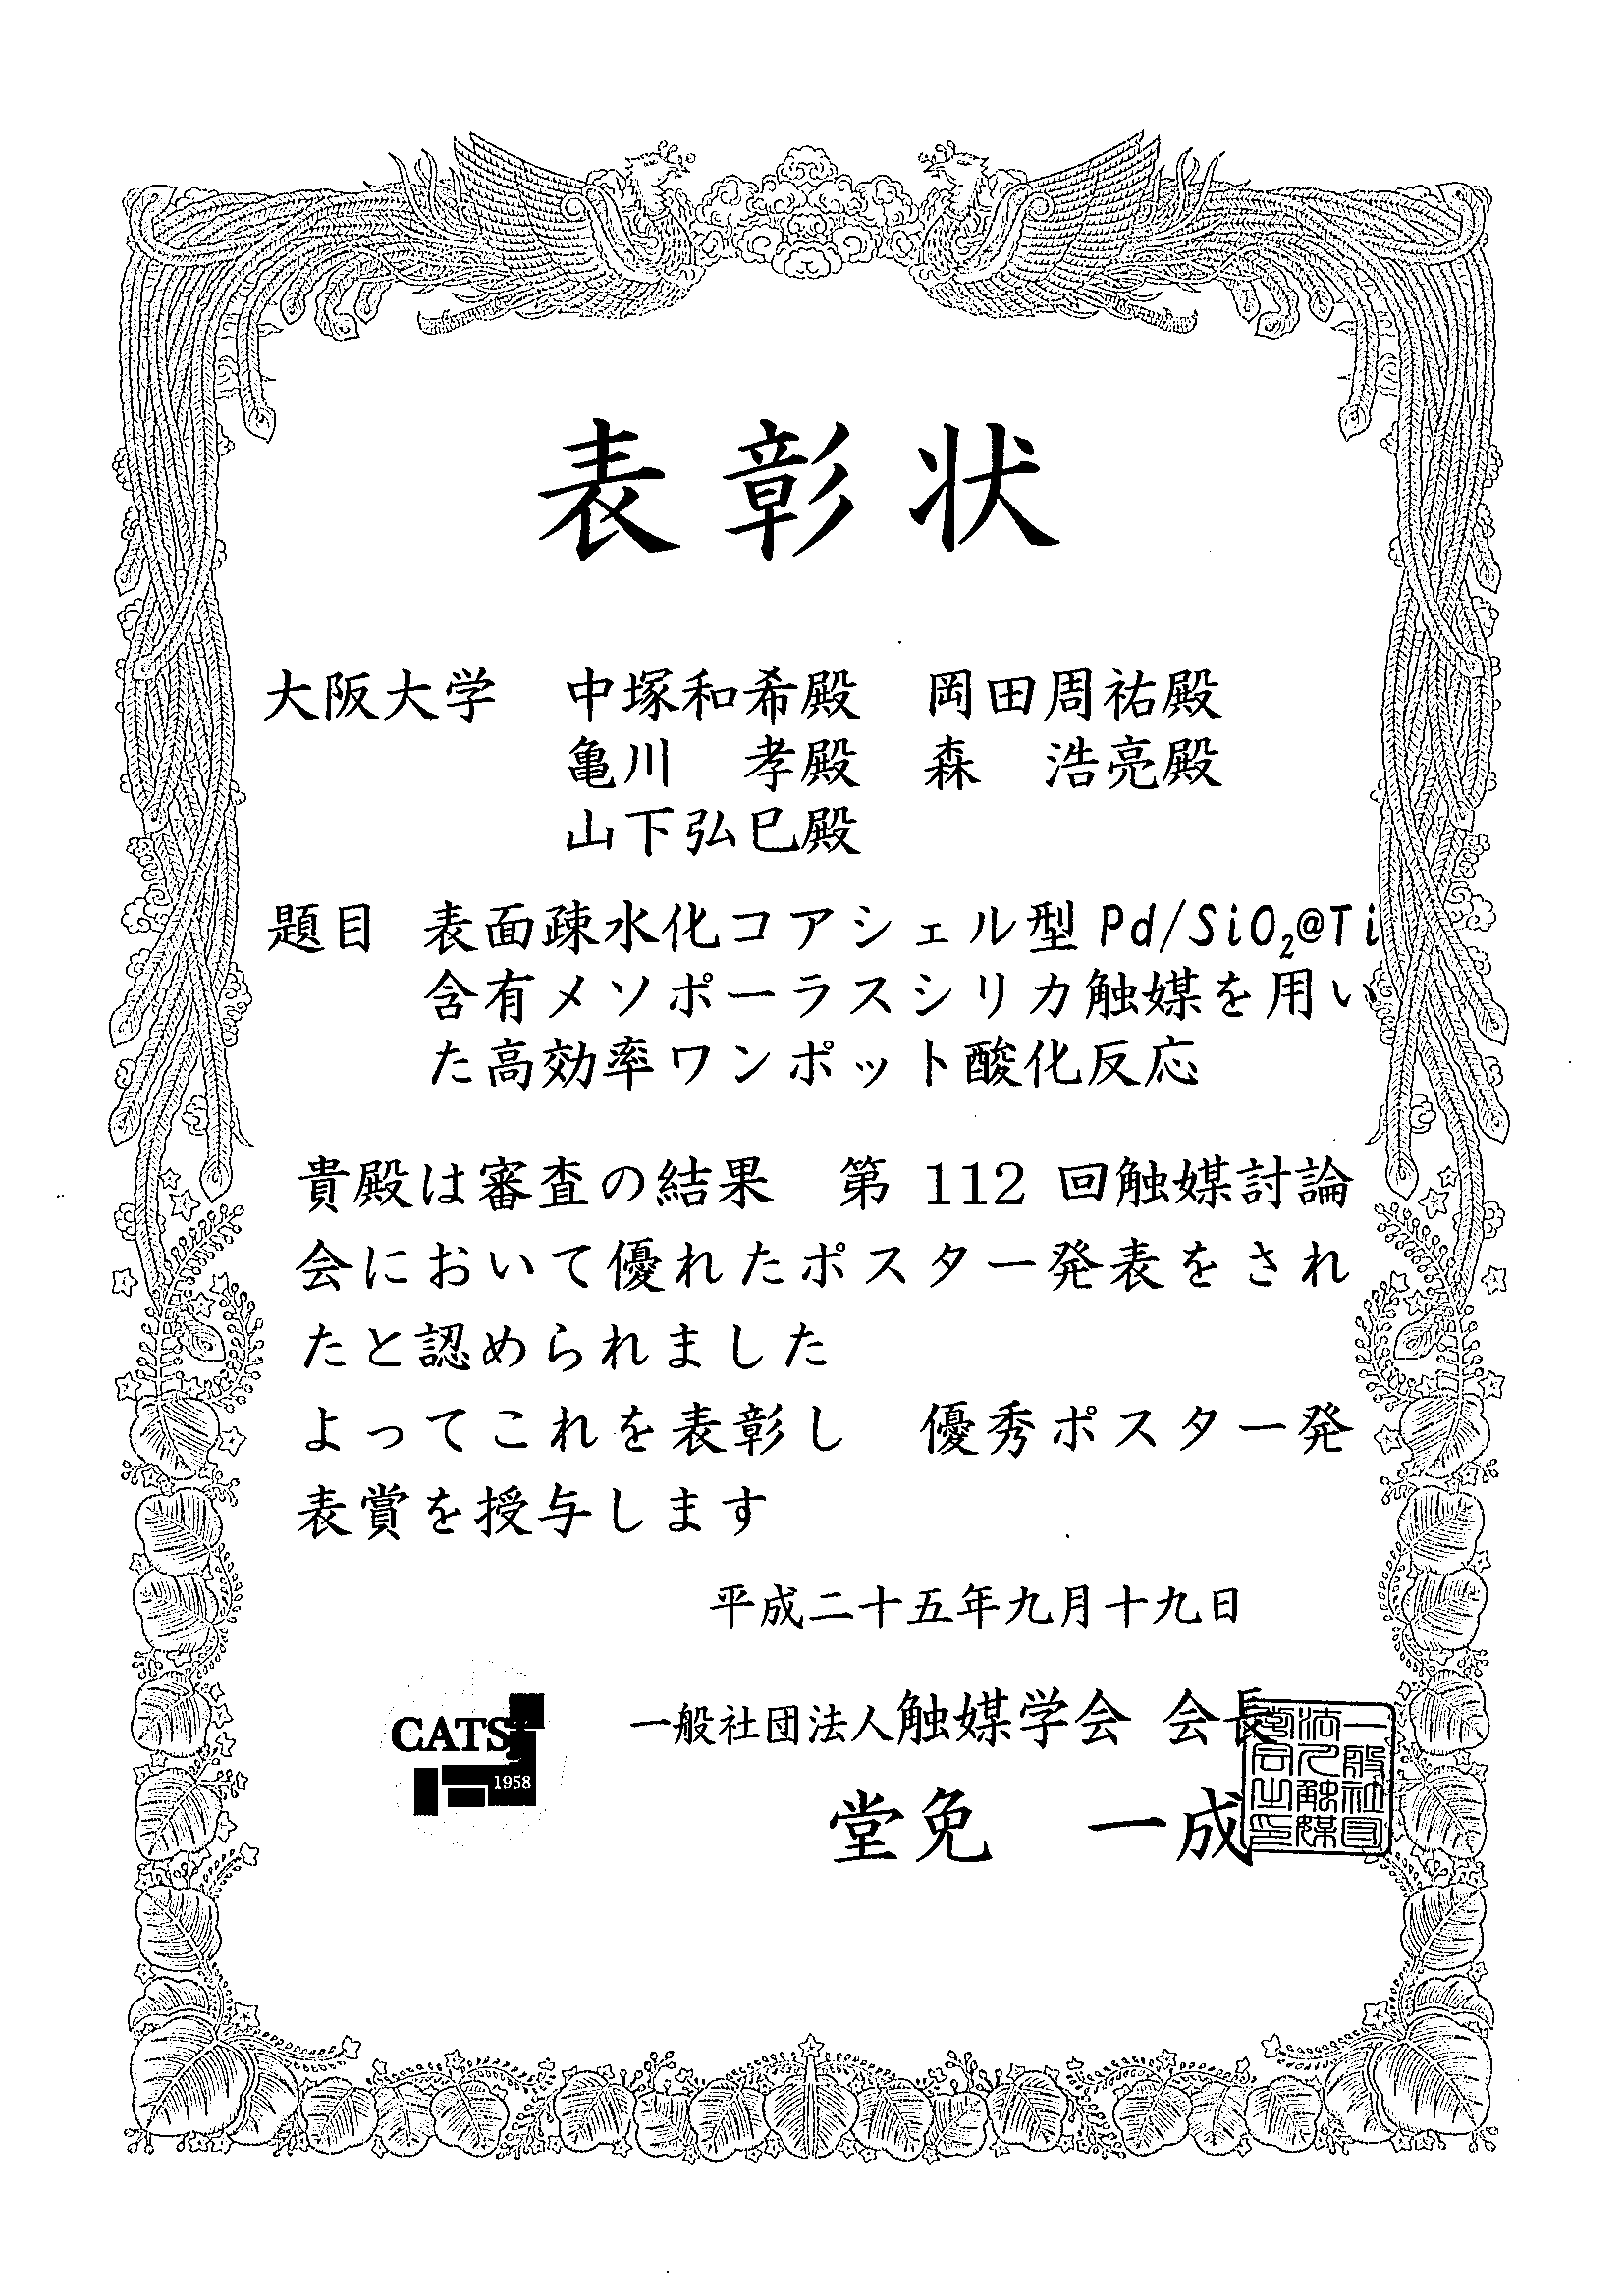 表彰状
大阪大学　中塚和希殿　岡田周祐殿
亀川　孝殿　森　浩亮殿
山下弘巳殿
題目　表面疎水化コアシェル型 Pd/SiO₂@Ti
含有メソポーラスシリカ触媒を用い
た高効率ワンポット酸化反応
貴殿は審査の結果　第 112 回触媒討論
会において優れたポスター発表をされ
たと認められました
よってこれを表彰し　優秀ポスター発
表賞を授与します
平成二十五年九月十九日
CATSJ
1958
一般社団法人触媒学会 会長
堂免　一成